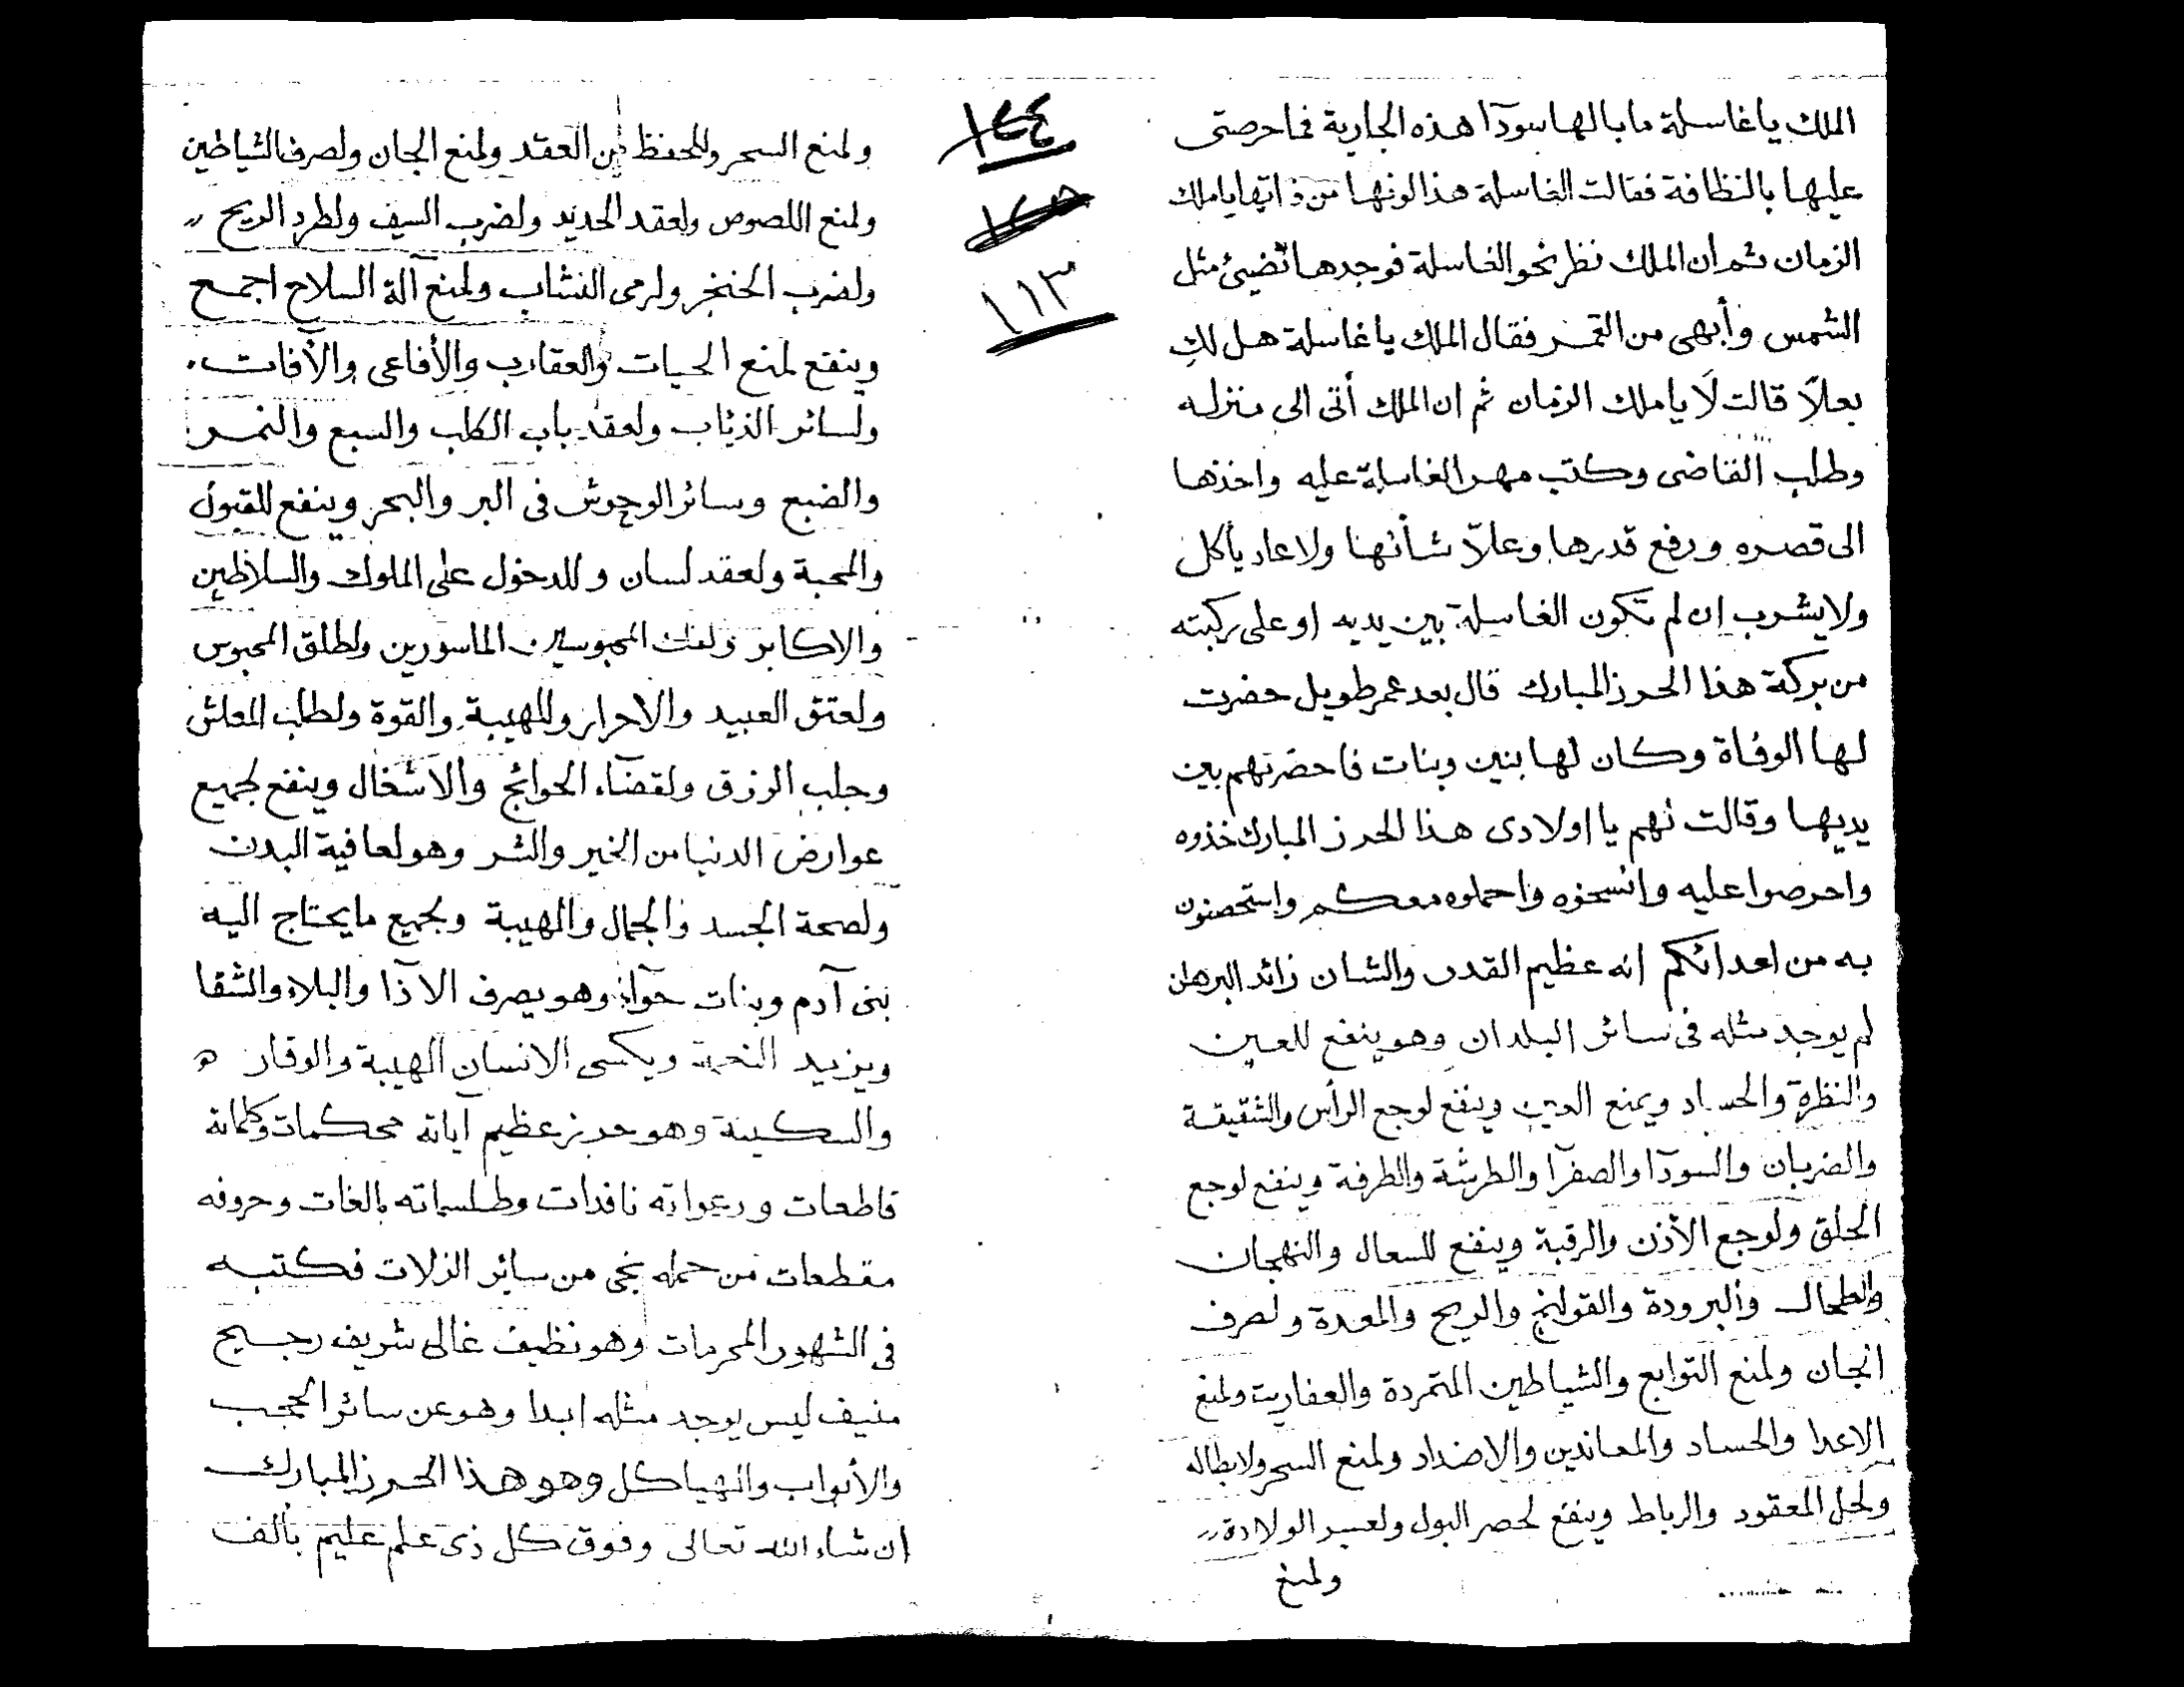 الملك ياغاسلة مابالها سودآ هذه الجارية فما حرصتى
عليها بالنظافة فقالت الغاسلة هذا لونها من ذاتها ياملك
الزمان ثم ان الملك نظر نحو الغاسلة فوجدها تضيئ مثل
الشمس وأبهى من القمر فقال الملك ياغاسلة هل لكِ
بعلاً قالت لَا ياملك الزمان ثم ان الملك أتى الى منزله
وطلب القاضى وكتب مهر الغاسلة عليه واخذها
الى قصره ورفع قدرها وعلاّ شأنها ولاعاد يأكل
ولايشرب ان لم تكون الغاسلة بين يديه او على ركبته
من بركة هذا الحرز المبارك قال بعد عمر طويل حضرت
لها الوفاة وكان لها بنين وبنات فاحضرتهم بين
يديها وقالت لهم يا اولادى هذا الحرز المبارك خذوه
واحرصوا عليه وانسخوه واحملوه معكم واستحصنون
به من اعدائكم انه عظيم القدر والشان زائد البرهان
لم يوجد مثله فى سائر البلدان وهو ينفع للعين
والنظرة والحساد ويمنع العين وينفع لوجع الرأس والشقيقة
والضربان والسودآ والصفرآ والطرشة والطرفة وينفع لوجع
الحلق ولوجع الأذن والرقبة وينفع للسعال والنهجان
والطحال والبرودة والقولنج والريح والمعدة ولصرف
الجان ولمنع التوابع والشياطين المتمردة والعفاريت ولمنع
الاعدا والحساد والمعاندين والاضداد ولمنع السحر ولابطاله
ولحل المعقود والرباط وينفع لحصر البول ولعسر الولادة
ولمنع
١٤٤
١١٣
ولمنع السحر وللحفظ من العقد ولمنع الجان ولصرف الشياطين
ولمنع اللصوص ولعقد الحديد ولضرب السيف ولطرد الريح
ولضرب الخنجر ولرمى النشاب ولمنع آلة السلاح اجمع
وينفع لمنع الحيات والعقارب والأفاعى والآفات
ولسائر الذئاب ولعقد باب الكلب والسبع والنمر
والضبع وسائر الوحوش فى البر والبحر وينفع للقبول
والمحبة ولعقد لسان وللدخول على الملوك والسلاطين
والاكابر ولفك المحبوسين الماسورين ولطلق المحبوس
ولعتق العبيد والاحرار وللهيبة والقوة ولطلب المعاش
وجلب الرزق ولقضآء الحوائج والاشغال وينفع لجميع
عوارض الدنيا من الخير والشر وهو لعافية البدن
ولصحة الجسد والجمال والهيبة ولجميع مايحتاج اليه
بنى آدم وبنات حوآء وهو يصرف الاذآ والبلاء والشقا
ويزيد ويكسى الانسان الهيبة والوقار
والسكينة وهو حرز عظيم آياته محكمات وكلماته
قاطعات ودعواته نافدات وطلسماته بالغات وحروفه
مقطعات من حمله نجى من سائر الزلات فكتبه
فى الشهور المحرمات وهو نظيف غالى شريف رجيح
منيف ليس يوجد مثله ابدا وهو عن سائر الحجب
والأبواب والهياكل وهو هذا الحرز المبارك
ان شاء الله تعالى وفوق كل ذى علم عليم بألف